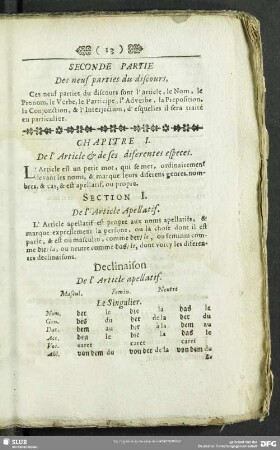 ( 13 )
SECONDE PARTIE
Des neuf parties du discours.
Ces neuf parties du discours sont l'article, le Nom, le
Pronom, le Verbe, le Participe, l'Adverbe, la Preposition,
la Conjonction, & l'Interjection, d'esquelles il sera traité
en particulier.
CHAPITRE I.
De l'Article & de ses diferentes especes.
L'Article est un petit mot, qui se met, ordinairement
devant les noms, & marque leurs diferens genres, nom-
bres, & cas, & est apellatif, ou propre.
SECTION I.
De l'Article Apellatif.
L'Article apellatif est propre aux noms apellatifs, &
marque expressement la persone, ou la chose dont il est
parlé, & est ou masculin, comme der, le, ou feminin com-
me die, la, ou neutre comme das, le, dont voicy les diferen-
tes declinaisons.
Declinaison
De l'Article apellatif.
Mascul. Femin. Neutre
Le Singulier.
Nom. der le die la das le
Gen. des du der de la des du
Dat. dem au der à la dem au
Acc. den le die la das le
Voc. caret caret caret
Abl. von dem du von der de la von dem du